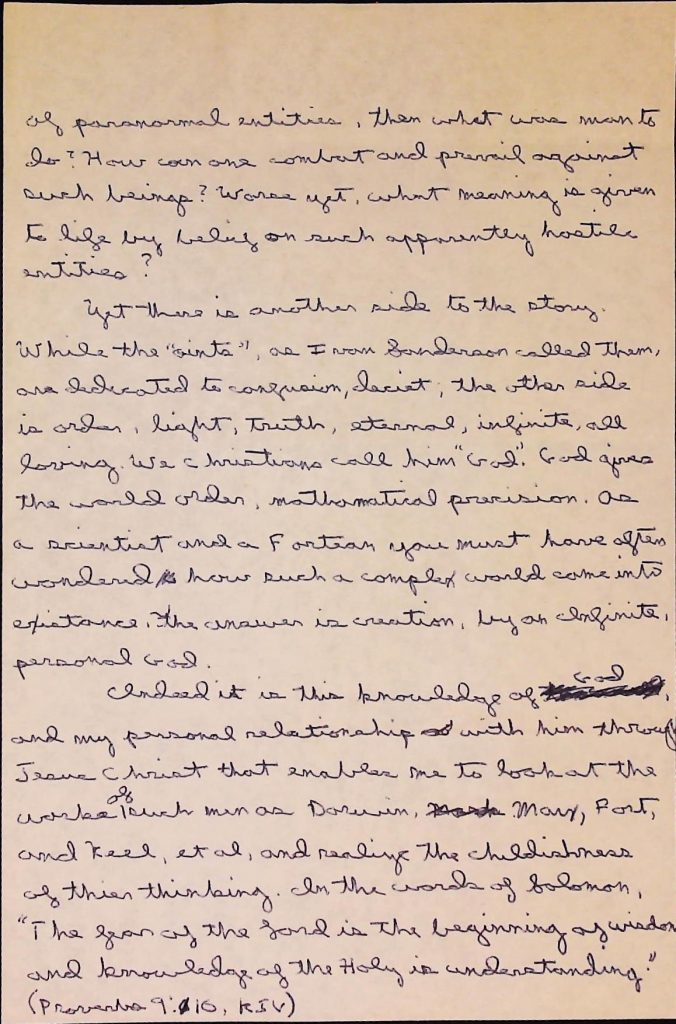 of paranormal entities, then what was man to
do? How can one combat and prevail against
such beings? Worse yet, what meaning is given
to life by belief on such apparently hostile
entities?
Yet there is another side to the story.
While the "oints", as Ivan Sanderson called them,
are dedicated to confusion, deciet, the other side
is order, light, truth, eternal, infinite, all
loving. We Christians call him "God". God gives
the world order, mathamatical precision. As
a scientist and a Fortean you must have often
wondered how such a complex world came into
existance. The answer is creation, by an Infinite,
personal God.
Indeed it is this knowledge of God,
and my personal relationship with him through
Jesus Christ that enables me to look at the
works of such men as Darwin, Marx, Fort,
and Keel, et al, and realize the childishness
of thier thinking. In the words of Solomon,
"The fear of the Lord is the beginning of wisdom
and knowledge of the Holy is understanding."
(Proverbs 9:10, KJV)